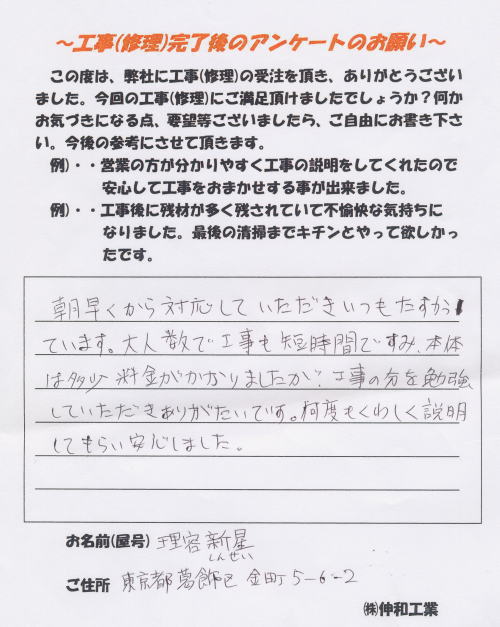 ～工事(修理)完了後のアンケートのお願い～
この度は、弊社に工事(修理)の受注を頂き、ありがとうござい
ました。今回の工事(修理)にご満足頂けましたでしょうか？何か
お気づきになる点、要望等ございましたら、ご自由にお書き下さ
い。今後の参考にさせて頂きます。
例)・・営業の方が分かりやすく工事の説明をしてくれたので
安心して工事をおまかせする事が出来ました。
例)・・工事後に残材が多く残されていて不愉快な気持ちに
なりました。最後の清掃までキチンとやって欲しかっ
たです。
朝早くから対応していただきいつもたすかっ
ています。大人数で工事も短時間ですみ、本体
は多少料金がかかりましたが、工事の分を勉強
していただきありがたいです。何度もくわしく説明
してもらい安心しました。
お名前(屋号) 理容 新星
しんせい
ご住所 東京都葛飾区 金町5-6-2
㈱伸和工業